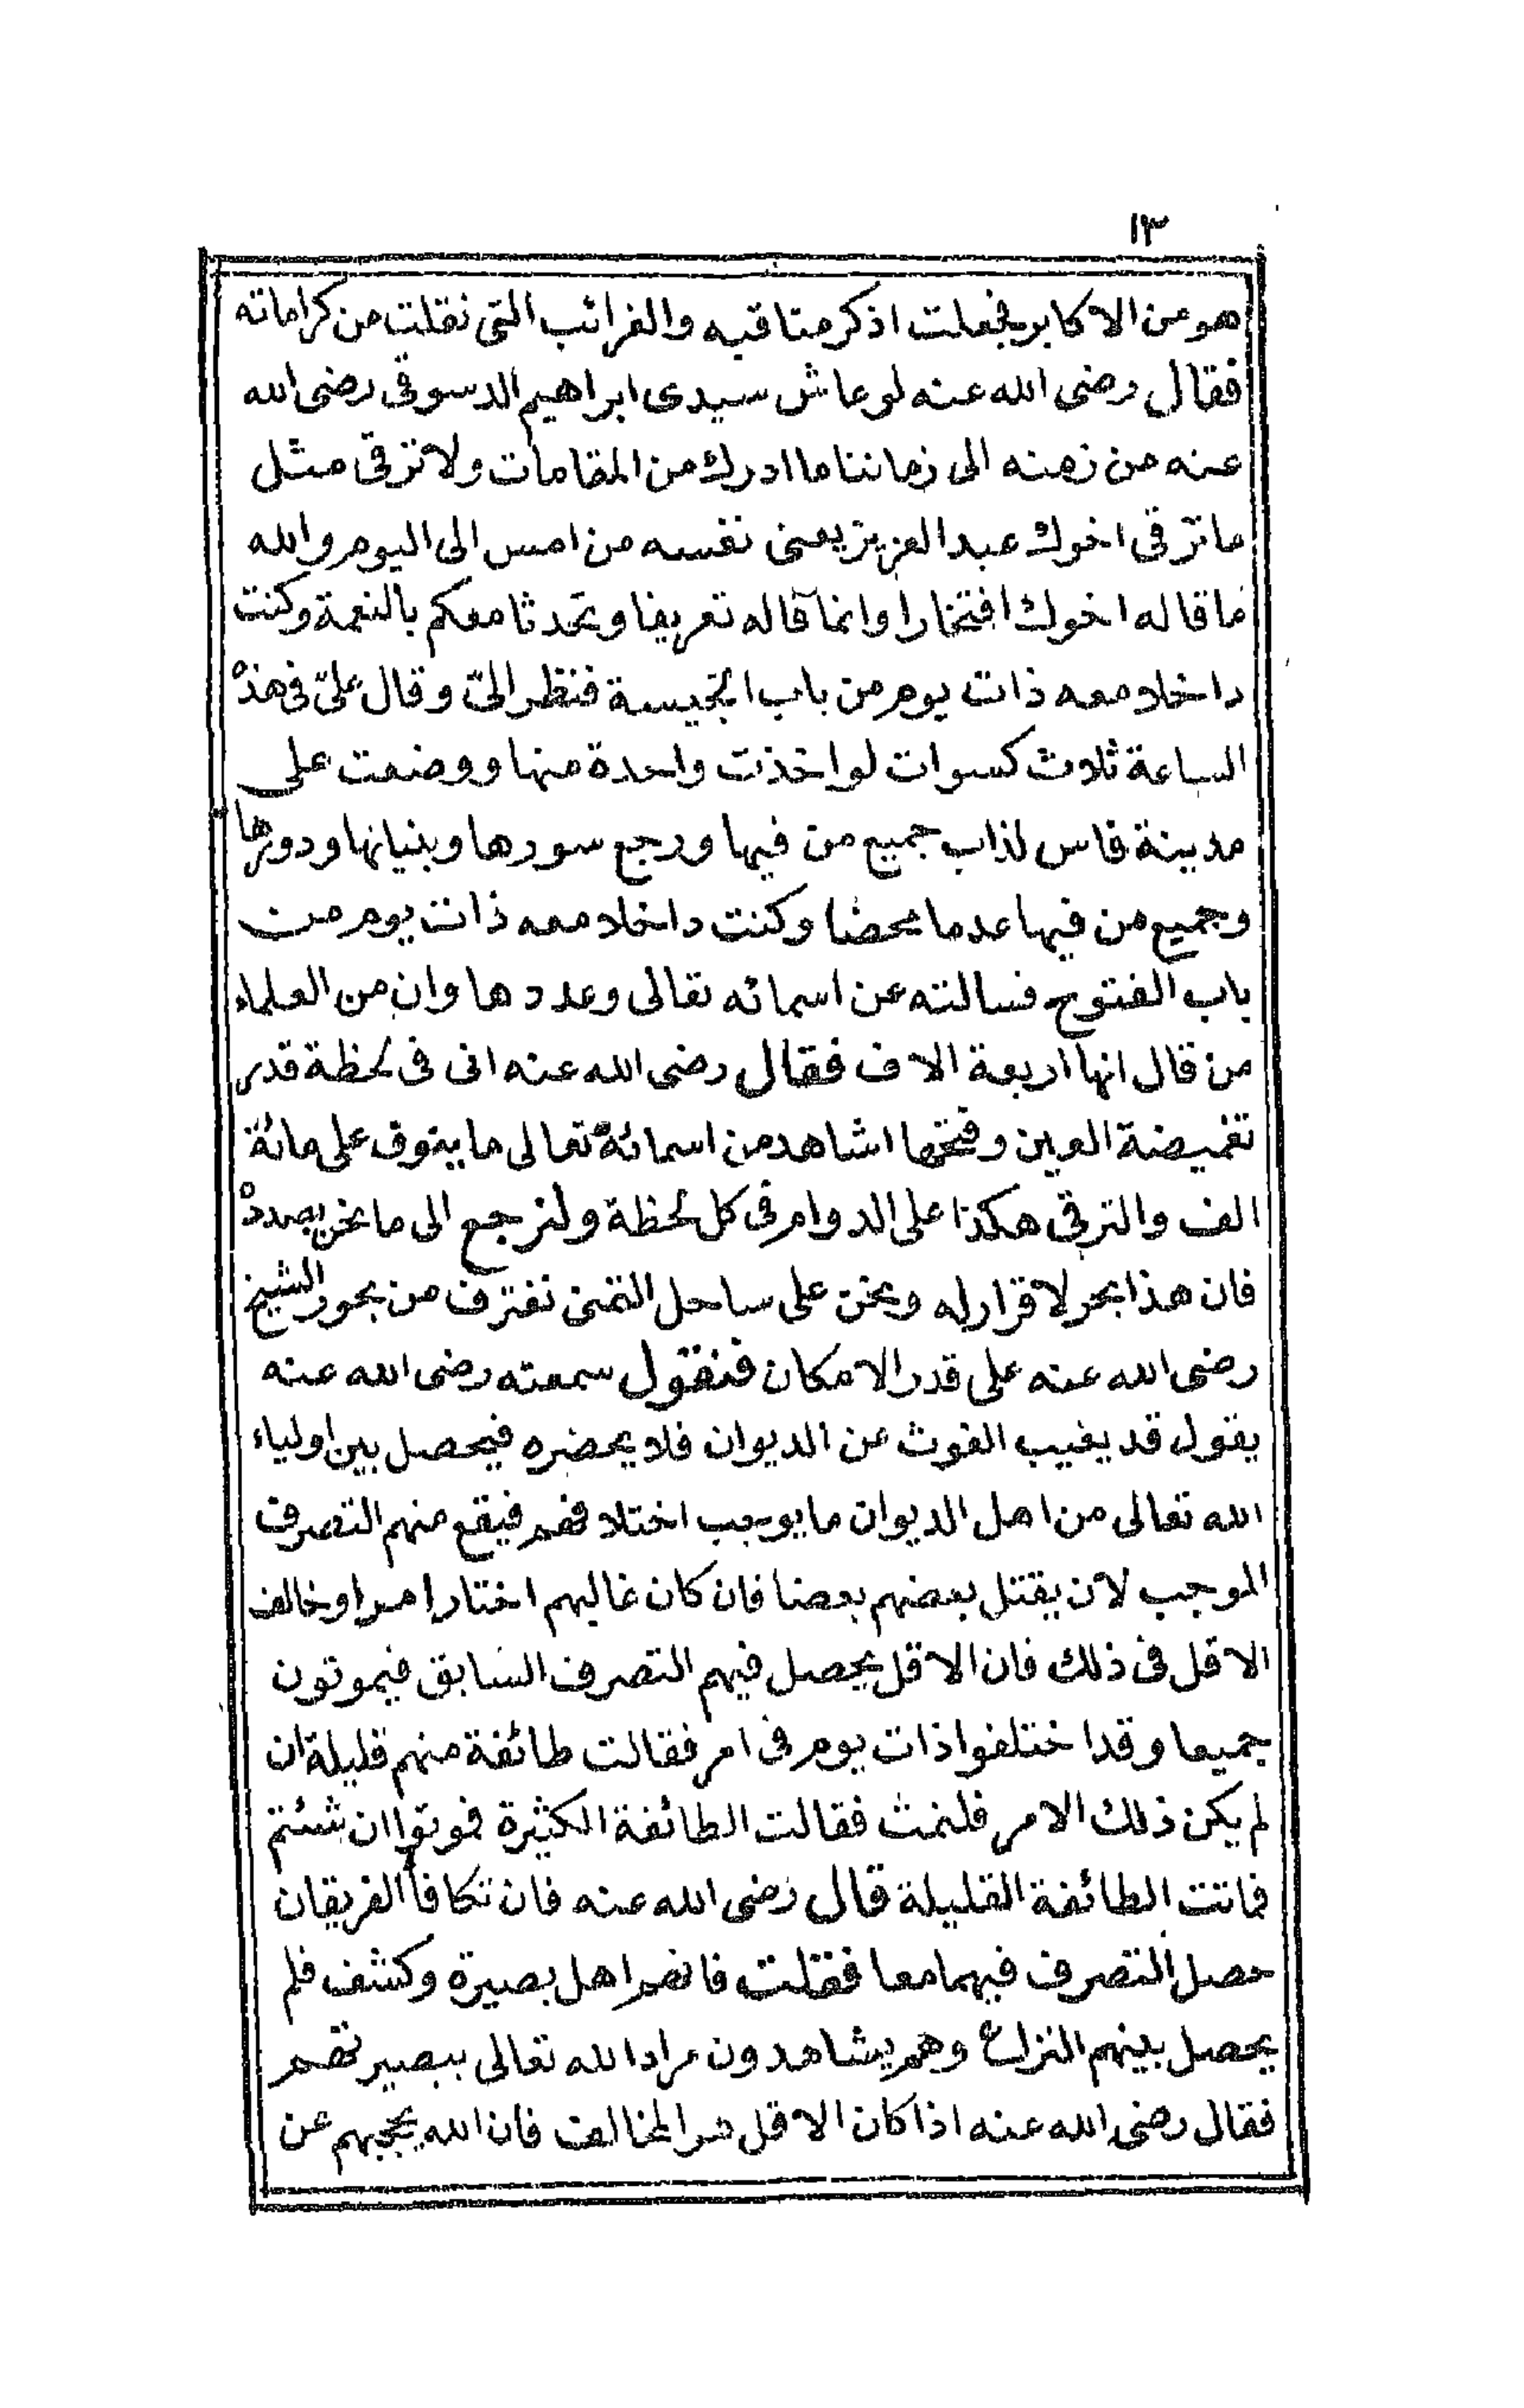 ١٣
هو من الاكابر فجعلت اذكر مناقبه والغرائب التى نقلت من كراماته
فقال رضى الله عنه لو عاش سيدى ابراهيم الدسوقى رضى الله
عنه من زمنه الى زماننا ما ادرك من المقامات ولا ترقى مثل
ما ترقى اخوك عبد العزيز يعنى نفسه من امس الى اليوم والله
ما قاله اخوك افتخارا وانما قاله تعريفا وتحدثا معكم بالنعمة وكنت
داخلا معه ذات يوم من باب الحيسة فنظر الىّ وقال علىّ فى هذه
الساعة ثلاث كسوات لو اخذت واحدة منها ووضعت على
مدينة فاس لذاب جميع من فيها ورجع سورها وبنيانها ودورها
وجميع من فيها عدما محضا وكنت داخلا معه ذات يوم من
باب الفتوح فسالته عن اسمائه تعالى وعددها وان من العلماء
من قال انها اربعة الاف فقال رضى الله عنه انى فى لحظة قدر
تغميضة العين وفتحها اشاهد من اسمائه تعالى ما ينوف على مائة
الف والترقى هكذا على الدوام فى كل لحظة ولنرجع الى ما نحن بصدده
فان هذا بحر لا قرار له ونحن على ساحل التمنى نغترف من بحور الشيخ
رضى الله عنه على قدر الامكان فنقول سمعته رضى الله عنه
يقول قد يغيب الغوث عن الديوان فلا يحضره فيحصل بين اولياء
الله تعالى من اهل الديوان ما يوجب اختلافهم فيقع منهم التصرف
الموجب لان يقتل بعضهم بعضا فان كان غالبهم اختار امرا وخالف
الاقل فى ذلك فان الاقل يحصل فيهم التصرف السابق فيموتون
جميعا وقد اختلفوا ذات يوم فى امر فقالت طائفة منهم قليلة ان
لم يكن ذلك الامر فلنمت فقالت الطائفة الكثيرة فموتوا ان شئتم
فماتت الطائفة القليلة قال رضى الله عنه فان تكافأ الفريقان
حصل التصرف فيهما معا فقلت فانهم اهل بصيرة وكشف فلم
يحصل بينهم النزاع وهم يشاهدون مراد الله تعالى ببصيرتهم
فقال رضى الله عنه اذا كان الاقل هو المخالف فان الله يحجبهم عن